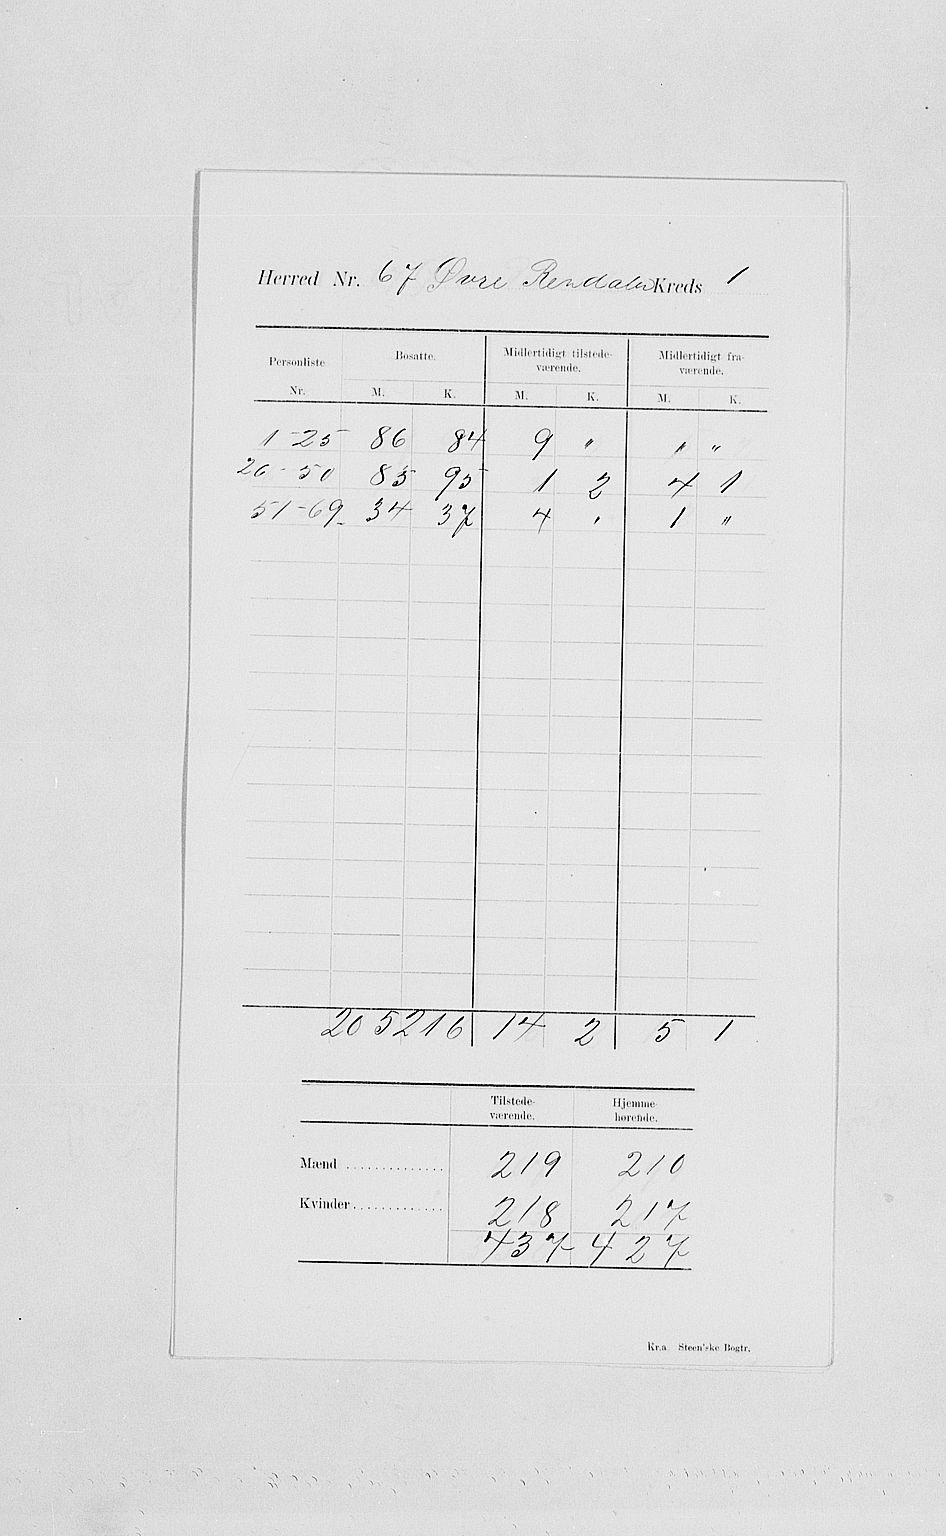 Herred Nr. 67 Øvre Rendalen Kreds 1
Personliste Nr. Bosatte. Midlertidigt tilstede-værende. Midlertidigt fra-værende.
M. K. M. K. M. K.
1-25 86 84 9 " " "
26-50 85 95 1 2 4 1
51-69 34 37 4 " 1 "
205 216 14 2 5 1
Tilstede-værende. Hjemme-hørende.
Mænd .............. 219 210
Kvinder ............. 218 217
437 427
Kr.a. Steen'ske Bogtr.